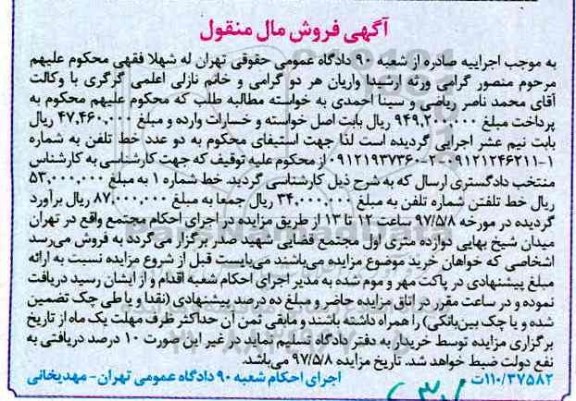 آگهی فروش مال منقول
به موجب اجراییه صادره از شعبه ۹۰ دادگاه عمومی حقوقی تهران له شهلا فقهی محکوم علیهم
مرحوم منصور گرامی ورثه ارشیدا واریان هر دو گرامی و خانم نازلی اعلمی گرگری با وکالت
آقای محمد ناصر ریاضی و سینا احمدی به خواسته مطالبه طلب که محکوم علیهم محکوم به
پرداخت مبلغ ۹۴۹,۲۰۰,۰۰۰ ریال بابت اصل خواسته و خسارات وارده و مبلغ ۴۷,۴۶۰,۰۰۰ ریال
بابت نیم عشر اجرایی گردیده است لذا جهت استیفای محکوم به دو عدد خط تلفن به شماره
۱-۰۹۱۲۱۲۴۶۲۱۱ ۲-۰۹۱۲۱۹۳۷۳۶۰ از محکوم علیه توقیف که جهت کارشناسی به کارشناس
منتخب دادگستری ارسال که به شرح ذیل کارشناسی گردید. خط شماره ۱ به مبلغ ۵۳,۰۰۰,۰۰۰
ریال خط تلفتن شماره تلفن به مبلغ ۳۴,۰۰۰,۰۰۰ ریال جمعا به مبلغ ۸۷,۰۰۰,۰۰۰ ریال برآورد
گردیده در مورخه ۹۷/۵/۸ ساعت ۱۲ تا ۱۳ از طریق مزایده در اجرای احکام مجتمع واقع در تهران
میدان شیخ بهایی دوازده متری اول مجتمع قضایی شهید صدر برگزار می‌گردد به فروش می‌رسد
اشخاصی که خواهان خرید موضوع مزایده می‌باشند می‌بایست قبل از شروع مزایده نسبت به ارائه
مبلغ پیشنهادی در پاکت مهر و موم شده به مدیر اجرای احکام شعبه اقدام و از ایشان رسید دریافت
نموده و در ساعت مقرر در اتاق مزایده حاضر و مبلغ ده درصد پیشنهادی (نقدا و یا طی چک تضمین
شده و یا چک بین‌بانکی) را همراه داشته باشند و مابقی ثمن آن حداکثر ظرف مهلت یک ماه از تاریخ
برگزاری مزایده توسط خریدار به دفتر دادگاه تسلیم نماید در غیر این صورت ۱۰ درصد دریافتی به
نفع دولت ضبط خواهد شد. تاریخ مزایده ۹۷/۵/۸ می‌باشد.
۱۱۰/۳۷۵۸۲ت اجرای احکام شعبه ۹۰ دادگاه عمومی تهران - مهدیخانی